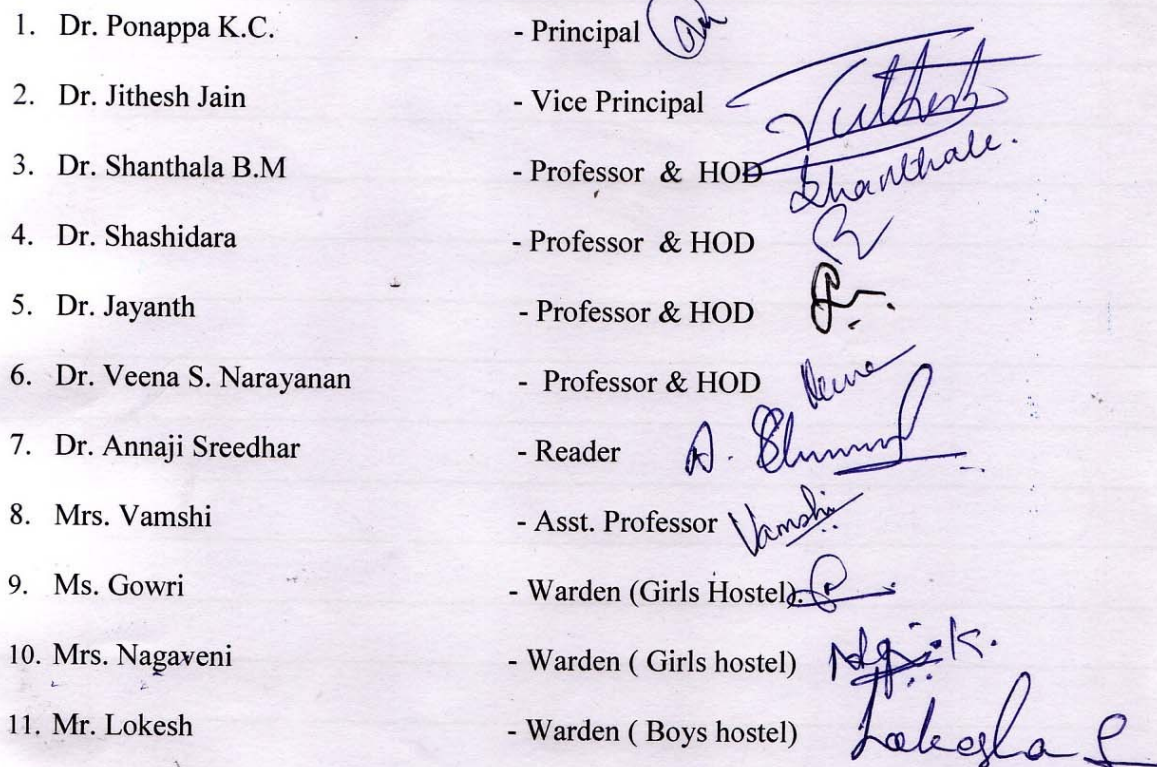 1. Dr. Ponappa K.C. - Principal
2. Dr. Jithesh Jain - Vice Principal Jithesh
3. Dr. Shanthala B.M - Professor & HOD Shanthale.
4. Dr. Shashidara - Professor & HOD
5. Dr. Jayanth - Professor & HOD
6. Dr. Veena S. Narayanan - Professor & HOD Veena
7. Dr. Annaji Sreedhar - Reader A.
8. Mrs. Vamshi - Asst. Professor Vamshi
9. Ms. Gowri - Warden (Girls Hostel).
10. Mrs. Nagaveni - Warden ( Girls hostel)
11. Mr. Lokesh - Warden ( Boys hostel) Lokesha S